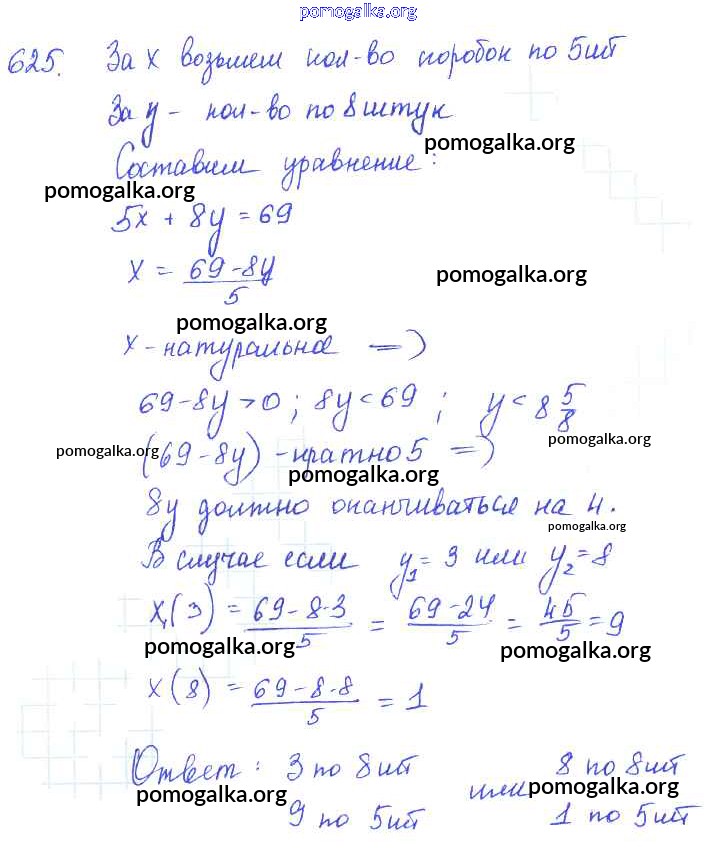 pomogalka.org
625. За x возьмем кол-во коробок по 5шт
За y - кол-во по 8 штук
pomogalka.org
Составим уравнение:
pomogalka.org
5x + 8y = 69
x = (69-8y)/5
pomogalka.org
pomogalka.org
x - натуральное =>
69-8y>0; 8y<69; y<8 5/8
pomogalka.org
pomogalka.org
(69-8y) - кратно 5 =>
pomogalka.org
8y должно оканчиваться на 4.
pomogalka.org
В случае если y₁=3 или y₂=8
x₁(3) = (69-8·3)/5 = (69-24)/5 = 45/5 = 9
pomogalka.org
pomogalka.org
x(8) = (69-8·8)/5 = 1
Ответ: 3 по 8шт или 8 по 8шт
pomogalka.org
pomogalka.org
9 по 5шт 1 по 5шт